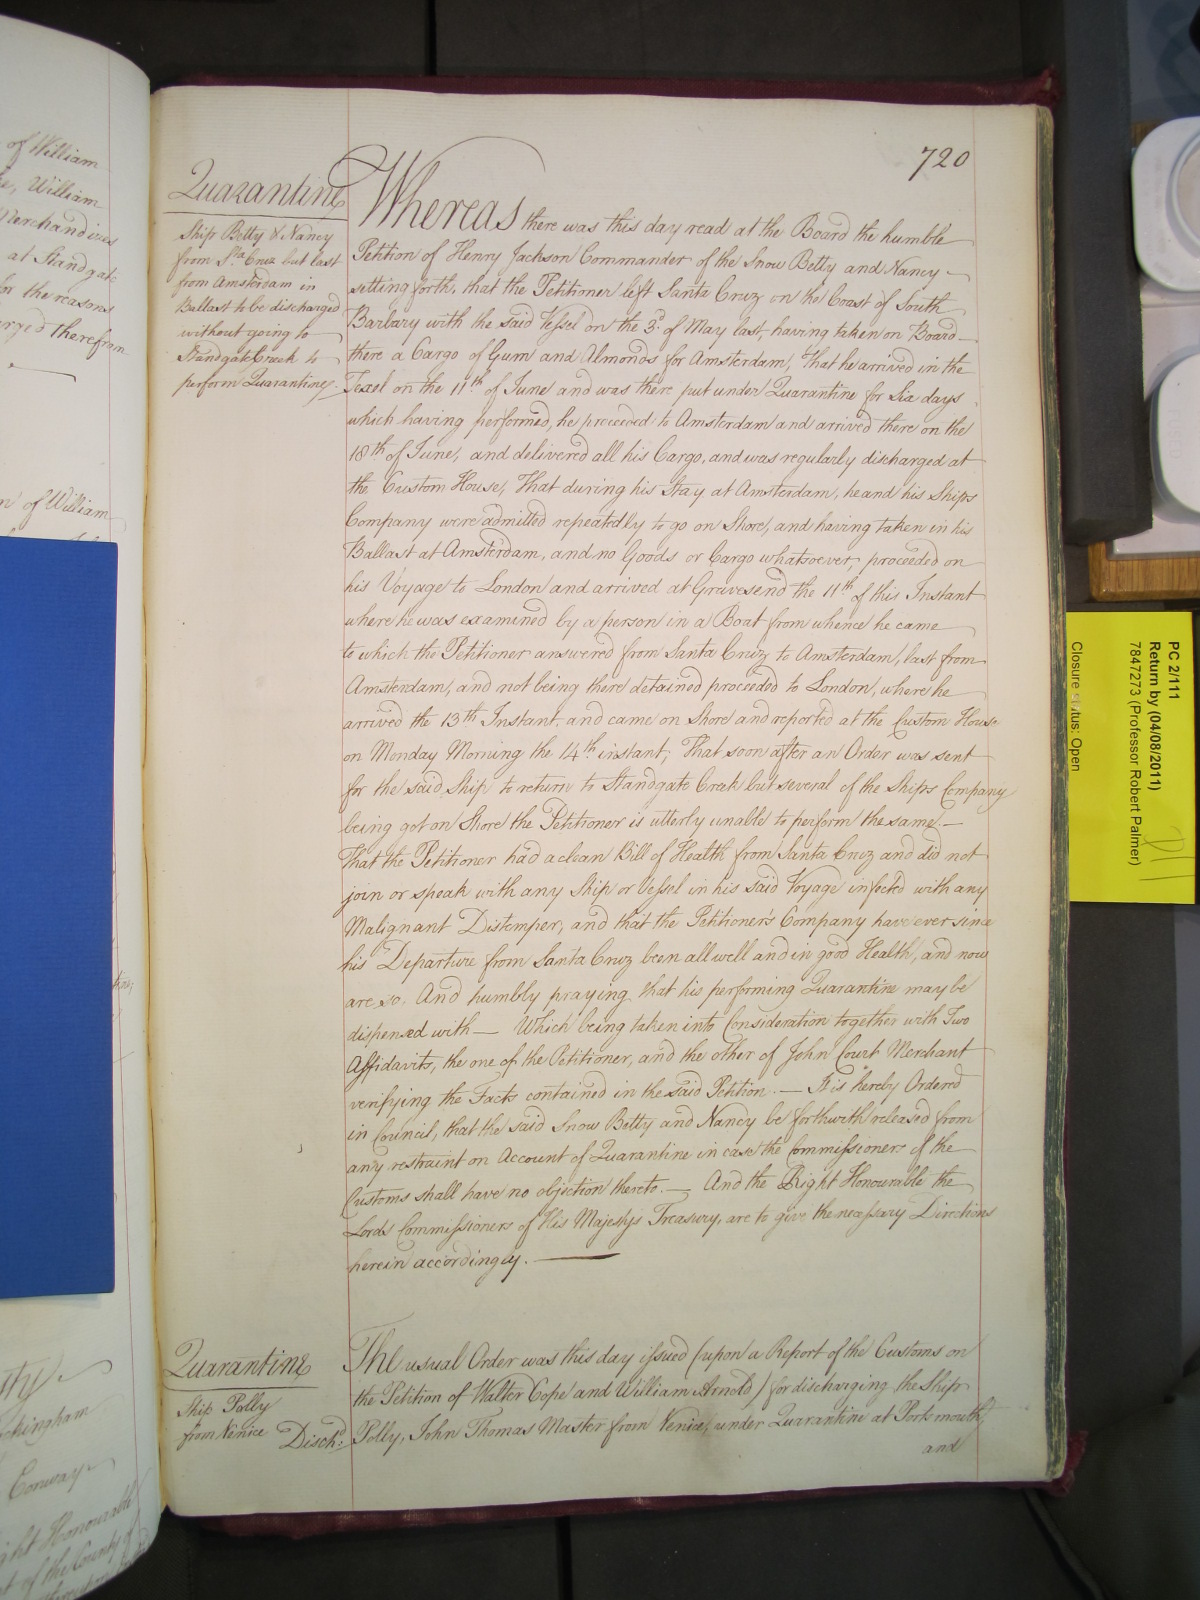 720
Quarantine
Ship Betty & Nancy
from Sta. Cruz but last
from Amsterdam in
Ballast to be discharged
without going to
Standgate Creek to
perform Quarantine.
Whereas there was this day read at the Board the humble
Petition of Henry Jackson Commander of the Snow Betty and Nancy
setting forth, that the Petitioner left Santa Cruz on the Coast of South
Barbary with the said Vessel on the 3d. of May last, having taken on Board
there a Cargo of Gum and Almonds for Amsterdam, That he arrived in the
Texel on the 11th of June and was there put under Quarantine for Six days
which having performed, he proceeded to Amsterdam and arrived there on the
18th of June, and delivered all his Cargo, and was regularly discharged at
the Custom House, That during his Stay at Amsterdam, he and his Ships
Company were admitted repeatedly to go on Shore, and having taken in his
Ballast at Amsterdam, and no Goods or Cargo whatsoever, proceeded on
his Voyage to London and arrived at Gravesend the 11th of this Instant
where he was examined by a person in a Boat from whence he came
to which the Petitioner answered from Santa Cruz to Amsterdam, last from
Amsterdam, and not being there detained proceeded to London, where he
arrived the 13th Instant, and came on Shore and reported at the Custom House
on Monday Morning the 14th instant; That soon after an Order was sent
for the said Ship to return to Standgate Creek but several of the Ships Company
being got on Shore the Petitioner is utterly unable to perform the same.
That the Petitioner had a clean Bill of Health from Santa Cruz and did not
join or speak with any Ship or Vessel in his said Voyage infected with any
Malignant Distemper, and that the Petitioner's Company have ever since
his Departure from Santa Cruz been all well and in good Health, and now
are so. And humbly praying that his performing Quarantine may be
dispensed with — Which being taken into Consideration together with Two
Affidavits, the one of the Petitioner, and the other of John Court Merchant
verifying the Facts contained in the said Petition. — It is hereby Ordered
in Council, that the said Snow Betty and Nancy be forthwith released from
any restraint on Account of Quarantine in case the Commissioners of the
Customs shall have no objection thereto. — And the Right Honourable the
Lords Commissioners of His Majestys Treasury, are to give the necessary Directions
herein accordingly. —
Quarantine
Ship Polly
from Venice Disch:
The usual Order was this day issued (upon a Report of the Customs on
the Petition of Walter Cope and William Arnold) for discharging the Ship
Polly, John Thomas Master from Venice, under Quarantine at Portsmouth,
and
of William
William
Merchandizes
at Standgate
the reasons
therefrom
of William
Conway
Right Honourable
of the County of
PC 2/111
Return by (04/08/2011)
7847273 (Professor Robert Palmer)
Closure status: Open